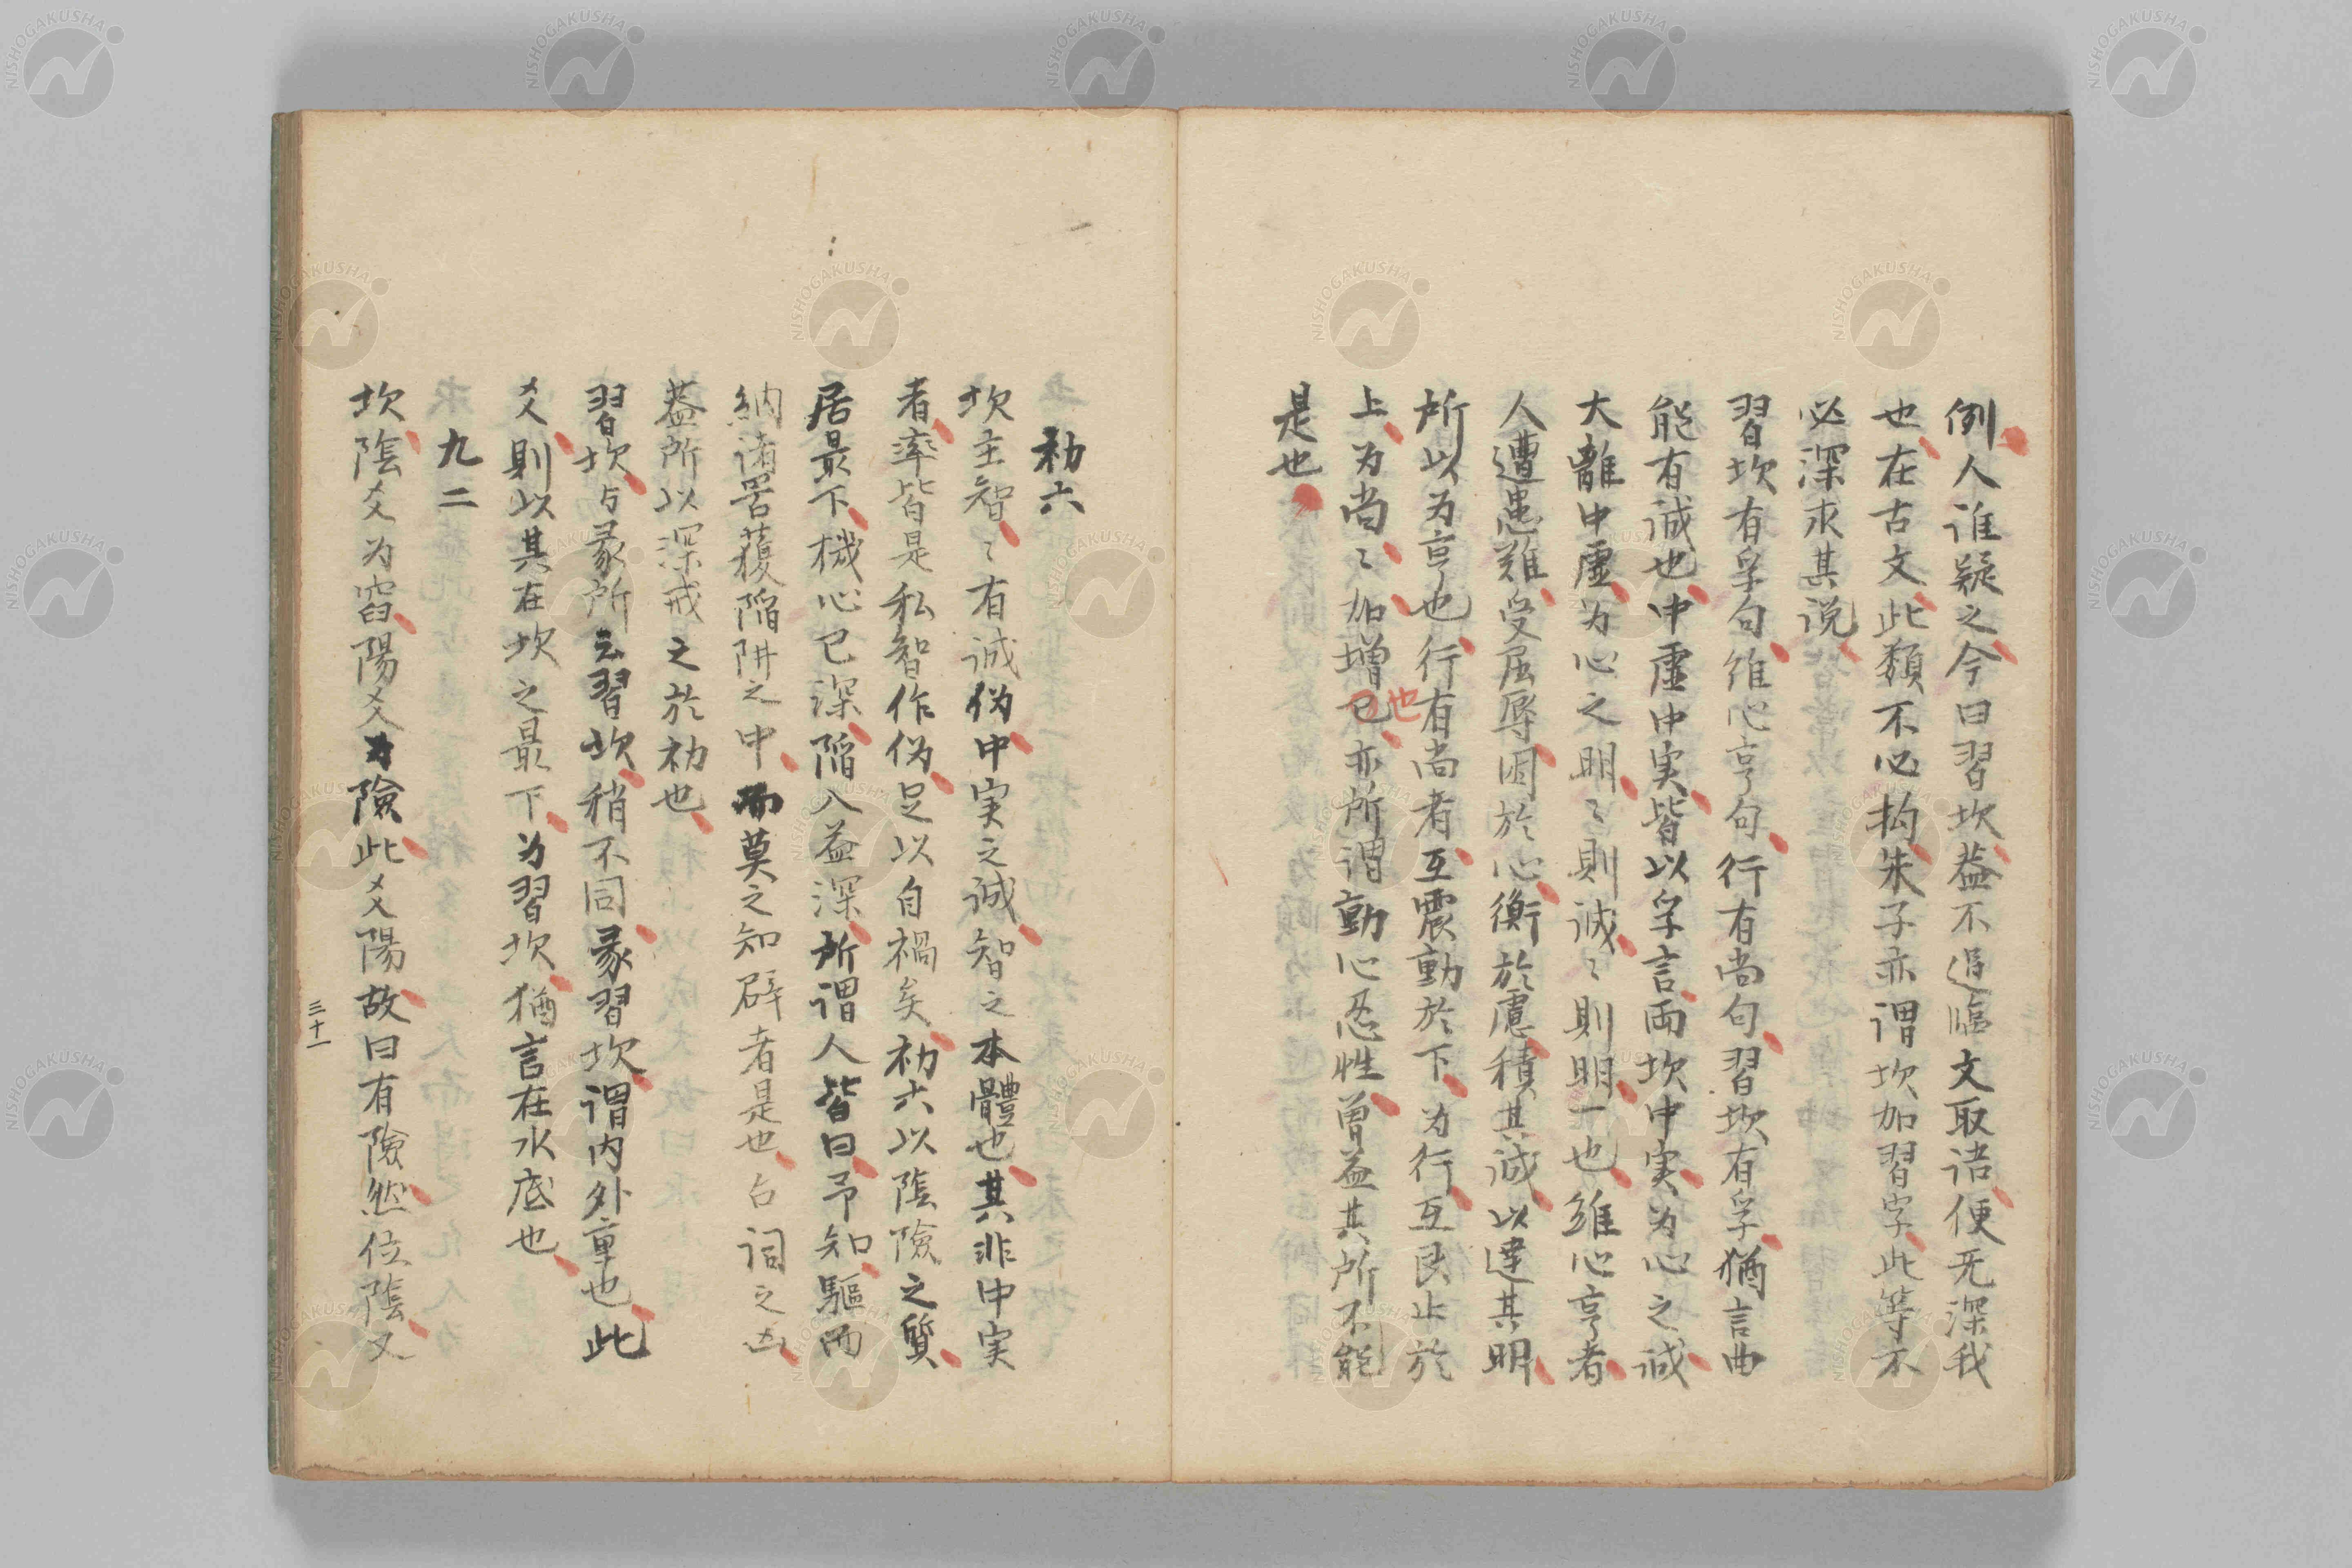 例人谁疑之今曰習坎葢不過臨文取语便无深我
也在古文此類不必拘朱子亦谓坎加習字此等不
必深求其説
習坎有孚句維心亨句行有尚句習坎有孚猶言曲
能有誠也中虛中実皆以孚言両坎中実为心之誠
大離中虛为心之明〻則誠〻則明一也維心亨者
人遭患難受屈辱困於心衡於慮積其誠以達其明
所以为亨也行有尚者互震動於下为行互艮止於
上为尚〻加増也已亦所謂動心忍性曽益其所不能
是也
初六
坎主智〻有誠偽中実之誠智之本體也其非中実
者率皆是私智作偽足以自禍矣初六以陰險之質
居最下機心已深陷入益深所謂人皆曰予知驅而
納諸罟擭陷阱之中而莫之知辟者是也占词之凶
葢所以深戒之於初也
習坎与彖所云習坎稍不同彖習坎謂内外重也此
爻則以其在坎之最下为習坎猶言在水底也
九二
坎陰爻为窞陽爻为險此爻陽故曰有險然位陰又
三十一
NISHOGAKUSHA